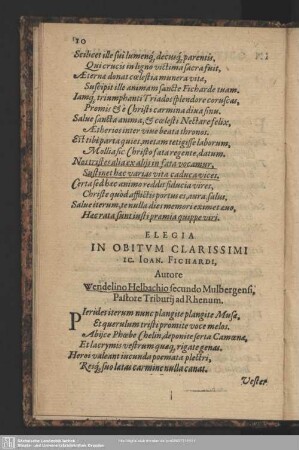 10
Scilicet ille sui lumenq́; decusq́; parentis,
Qui crucis in ligno victima sacra fuit,
Æterna donat cœlestia munera vita,
Suscipit ille animam sancte Fichardo tuam.
Iamq́; triumphanti Triados splendore coruscas,
Promis & è Christi carmina diva sinu.
Salve sancta anima, & cœlesti Nectare felix,
Æthereos inter vive beata thronos.
Est tibi parta quies, metam tetigisse laborum,
Mollia sic Christo fata regente, datum.
Nos tristes alia ex alijs in fata vocamur,
Sustinet hec varias vita caduca vices.
Certa sed hec animo reddis fiducia vires,
Christe quòd afflictis portus es, aura, salus,
Salve iterum, te nulla dies memori eximet ævo,
Hæc rata sunt iusti præmia quippe viri.
ELEGIA
IN OBITVM CLARISSIMI
IC. IOAN. FICHARDI,
Autore
Wendelino Helbachio secundo Mulbergensi,
Pastore Triburij ad Rhenum.
Pierides iterum nunc plangite plangite Musæ,
Et querulum tristi promite voce melos.
Abijce Phœbe Chelin, deponite serta Camœnæ,
Et lacrymis vestrum quæq́; rigate genas.
Heroi valeant iucunda poemata plectri,
Resq́; suo latas carmine nulla canat.
Vester